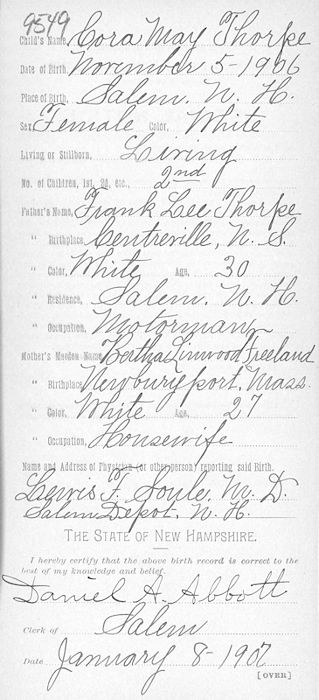 9549
Child's Name, Cora May Thorpe
Date of Birth, November 5-1906
Place of Birth, Salem. N. H.
Sex, Female Color, White
Living or Stillborn, Living
No. of Children, 1st, 2d, etc., 2nd
Father's Name, Frank Lee Thorpe
" Birthplace, Centreville, N. S.
" Color, White Age, 30
" Residence, Salem. N. H.
" Occupation, Motorman
Mother's Maiden Name, Bertha Linwood Freeland
" Birthplace, Newburyport, Mass.
" Color, White Age, 27
" Occupation, Housewife
Name and Address of Physician (or other person) reporting said Birth.
Lewis F. Soule, M. D.
Salem Depot, N. H.
THE STATE OF NEW HAMPSHIRE.
I hereby certify that the above birth record is correct to the
best of my knowledge and belief.
Daniel A. Abbott
Clerk of Salem
Date January 8-1907
[OVER]